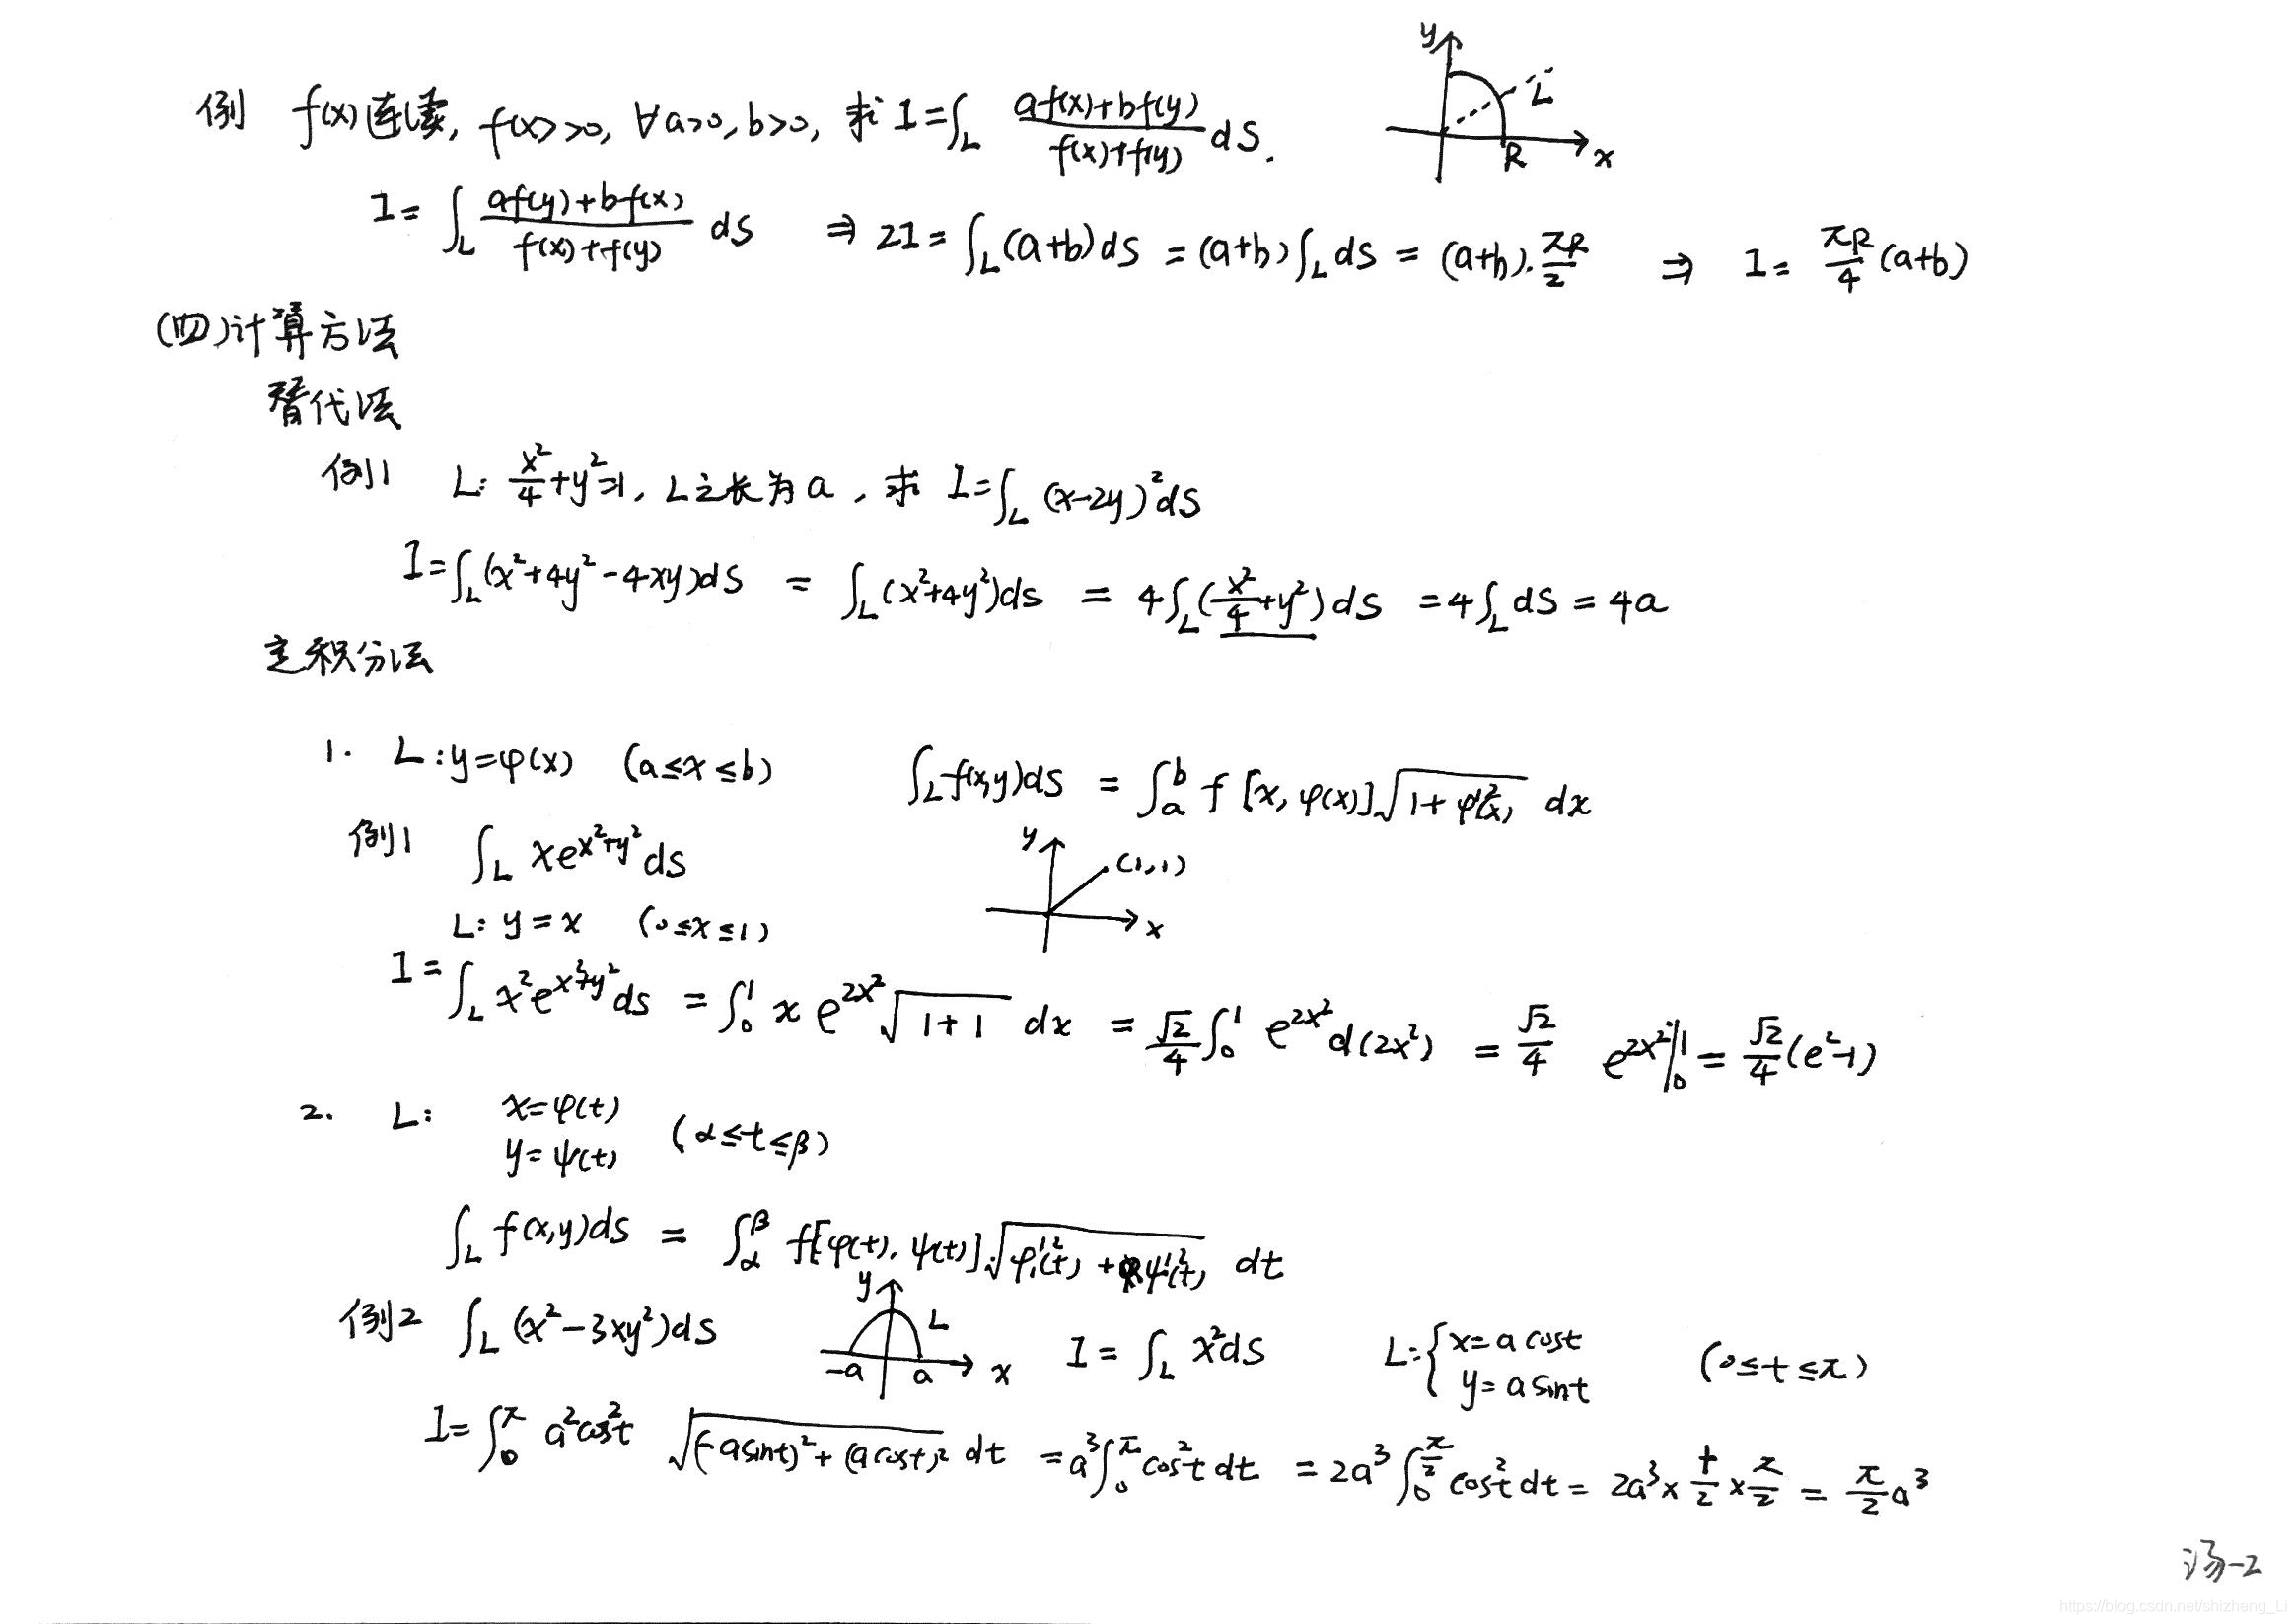 例 f(x)连续, f(x)>0, ∀a>0, b>0, 求 I=∫_L (af(x)+bf(y))/(f(x)+f(y)) dS.
y L R x
I=∫_L (af(y)+bf(x))/(f(x)+f(y)) dS ⇒ 2I=∫_L(a+b)dS=(a+b)∫_L dS=(a+b)·πR/2 ⇒ I=πR/4(a+b)
(四)计算方法
替代法
例1 L: x²/4+y²=1, L之长为a, 求 I=∫_L (x-2y)²dS
I=∫_L(x²+4y²-4xy)dS = ∫_L(x²+4y²)ds = 4∫_L(x²/4+y²)dS =4∫_L dS=4a
定积分法
1. L:y=φ(x) (a≤x≤b) ∫_L f(x,y)dS = ∫_a^b f[x,φ(x)]√(1+φ'²(x)) dx
例1 ∫_L xe^(x²+y²)ds
y (1,1) x
L: y=x (0≤x≤1)
I=∫_L x²e^(x²+y²)ds = ∫_0^1 x e^(2x²)√(1+1) dx = √2/4∫_0^1 e^(2x²)d(2x²) = √2/4 e^(2x²)|_0^1 = √2/4(e²-1)
2. L: x=φ(t)
y=ψ(t) (α≤t≤β)
∫_L f(x,y)dS = ∫_α^β f[φ(t),ψ(t)]√(φ'²(t)+ψ'²(t)) dt
例2 ∫_L (x²-3xy²)dS
y L -a a x
I=∫_L x²dS L:{x=a cost
y=a sint (0≤t≤π)
I=∫_0^π a²cos²t √((-asint)²+(acost)²) dt =a³∫_0^π cos²t dt =2a³∫_0^(π/2) cos²t dt= 2a³×1/2×π/2 = π/2 a³
汤-2
https://blog.csdn.net/shizheng_Li